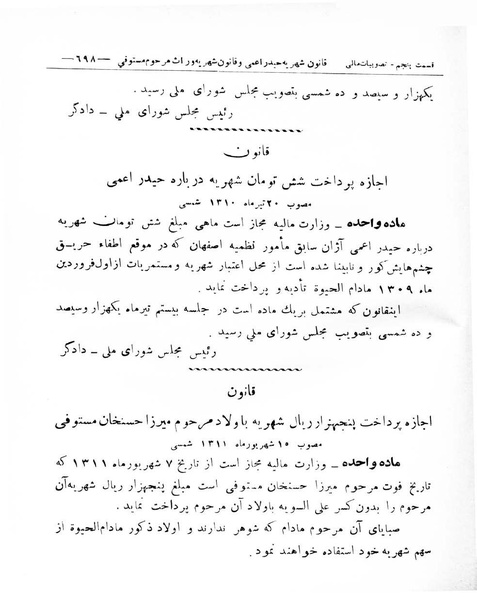 قسمت پنجم - تصویبات مالی    قانون شهریه حیدر اعمی و قانون شهریه وراث مرحوم مستوفی    —۶۹۸—
یکهزار و سیصد و ده شمسی بتصویب مجلس شورای ملی رسید .
رئیس مجلس شورای ملی - دادگر
قانون
اجازه پرداخت شش تومان شهریه درباره حیدر اعمی
مصوب ۲۰ تیرماه ۱۳۱۰ شمسی
ماده واحده - وزارت مالیه مجاز است ماهی مبلغ شش تومان شهریه
درباره حیدر اعمی آژان سابق مأمور نظمیه اصفهان که در موقع اطفاء حریق
چشم‌هایش کور و نابینا شده است از محل اعتبار شهریه و مستمریات از اول فروردین
ماه ۱۳۰۹ مادام الحیوة تأدیه و پرداخت نماید .
اینقانون که مشتمل بر یک ماده است در جلسه بیستم تیرماه یکهزار و سیصد
و ده شمسی بتصویب مجلس شورای ملی رسید .
رئیس مجلس شورای ملی - دادگر
قانون
اجازه پرداخت پنجهزار ریال شهریه باولاد مرحوم میرزا حسنخان مستوفی
مصوب ۱۵ شهریور ماه ۱۳۱۱ شمسی
ماده واحده - وزارت مالیه مجاز است از تاریخ ۷ شهریور ماه ۱۳۱۱ که
تاریخ فوت مرحوم میرزا حسنخان مستوفی است مبلغ پنجهزار ریال شهریه آن
مرحوم را بدون کسر علی السویه باولاد آن مرحوم پرداخت نماید .
صبایای آن مرحوم مادام که شوهر ندارند و اولاد ذکور مادام‌الحیوة از
سهم شهریه خود استفاده خواهند نمود .